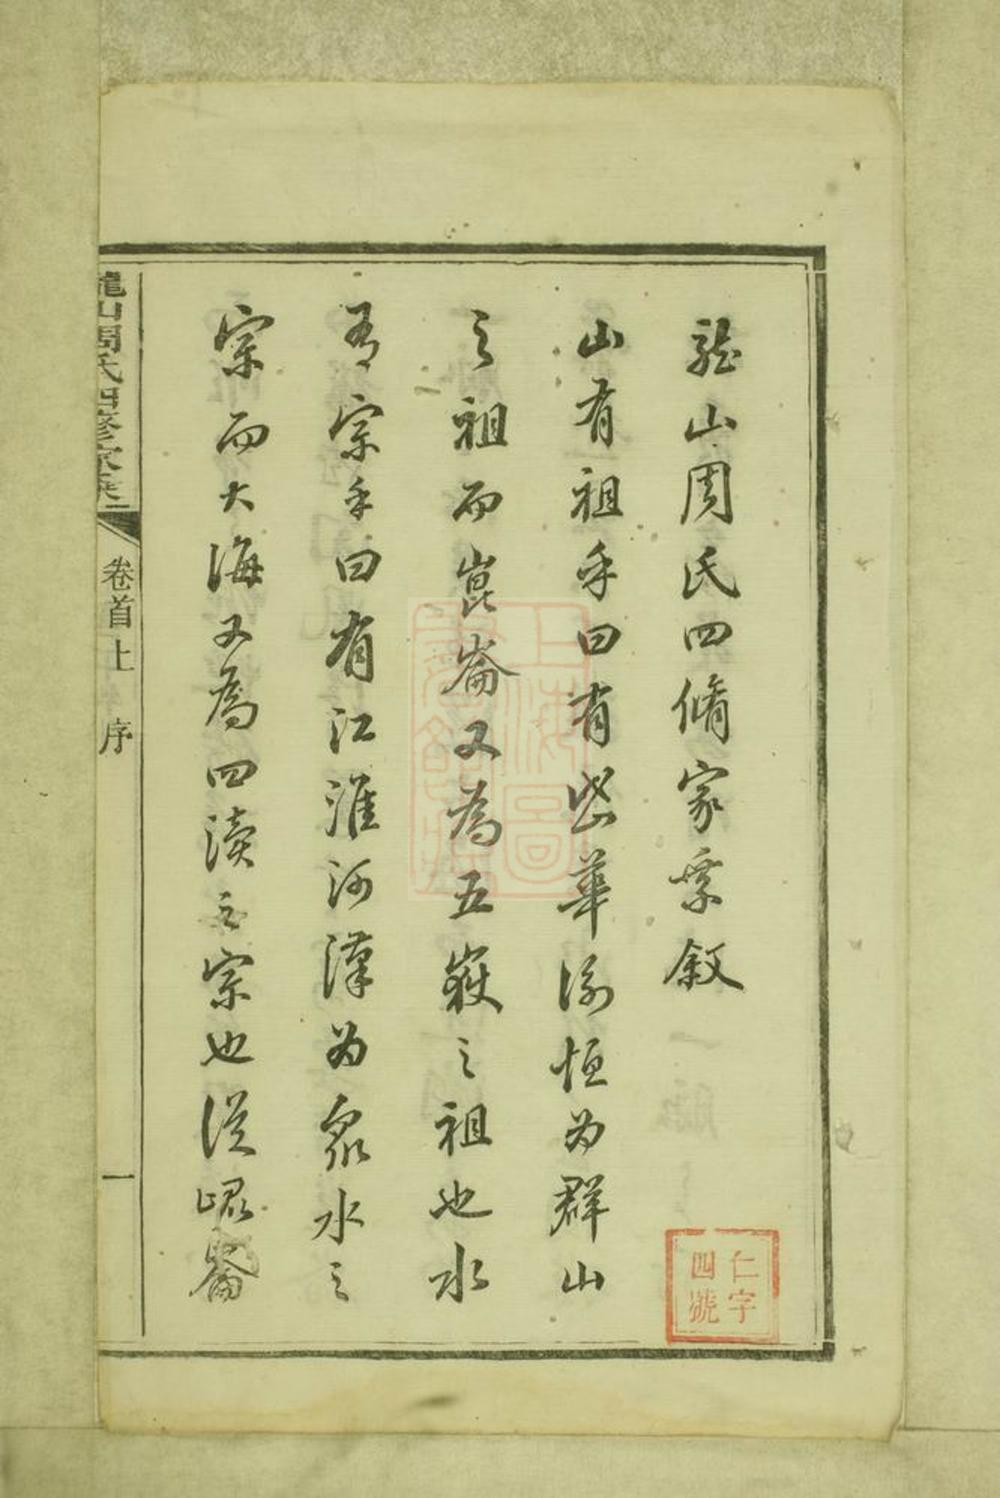 龍山周氏四脩家乘敘
山有祖乎曰有岱華衡恒為群山
之祖而崑崙又為五嶽之祖也水
有宗乎曰有江淮河漢為衆水之
宗而大海又為四瀆之宗也從崐崙
龍山周氏四修家乘
卷首上
序
一
仁字
四號
上海圖
書館藏